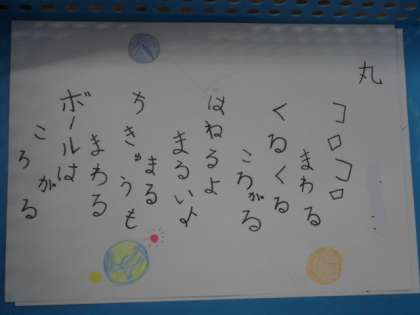 丸
コロコロ
まわる
くるくる
ころがる
はねるよ
まるいよ
まる
ボールは
まわる
ころがる